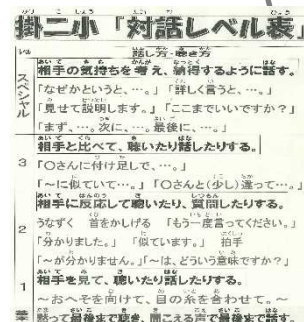 掛二小「対話レベル表」
話し方・聴き方
スペシャル
相手の気持ちを考え、納得するように話す。
「なぜかというと、…。」「詳しく言うと、…。」
「見せて説明します。」「ここまでいいですか？」
「まず、…。次に、…。最後に、…。」
3
相手と比べて、聴いたり話したりする。
「〇さんに付け足しで、…。」
「～に似ていて…。」「〇さんと(少し)違って…。」
2
相手に反応して聴いたり、質問したりする。
うなずく 首をかしげる 「もう一度言ってください。」
「分かりました。」「似ています。」 拍手
「～が分かりません。」「～は、どういう意味ですか？」
1
相手を見て、聴いたり話したりする。
～おへそを向けて、目の糸を合わせて。～
黙って最後まで聴き、聞こえる声で最後まで話す。